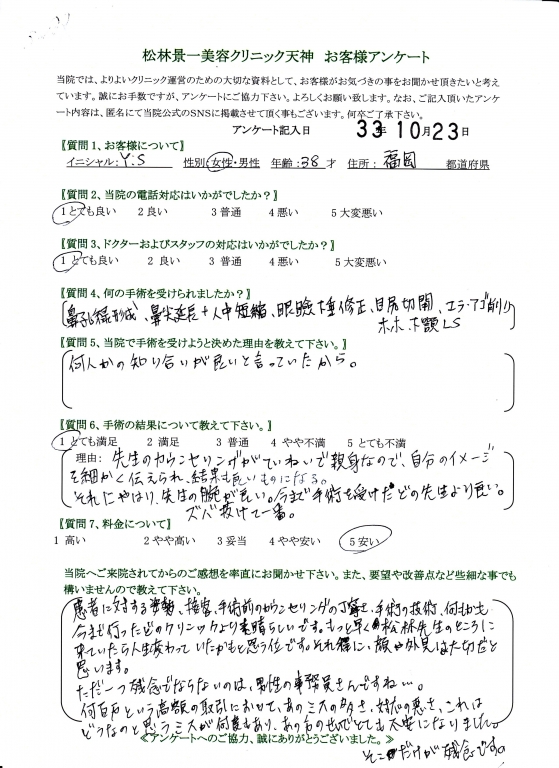 松林景一美容クリニック天神　お客様アンケート
当院では、よりよいクリニック運営のための大切な資料として、お客様がお気づきの事をお聞かせ頂きたいと考え
ています。誠にお手数ですが、アンケートにご協力下さい。よろしくお願い致します。なお、ご記入頂いたアンケ
ート内容は、匿名にて当公式のSNSに掲載させて頂く事もございます。何卒ご了承下さい。
アンケート記入日　33年10月23日
【質問1、お客様について】
イニシャル：Y.S　性別：女性・男性　年齢：38才　住所：福岡　都道府県
【質問2、当院の電話対応はいかがでしたか？】
1とても良い　2良い　3普通　4悪い　5大変悪い
【質問3、ドクターおよびスタッフの対応はいかがでしたか？】
1とても良い　2良い　3普通　4悪い　5大変悪い
【質問4、何の手術を受けられましたか？】
鼻孔縁形成、鼻尖延長+人中短縮、眼瞼下垂修正、目尻切開、エラ・アゴ削り
ホホ、下顎LS
【質問5、当院で手術を受けようと決めた理由を教えて下さい。】
何人かの知り合いが良いと言っていたから。
【質問6、手術の結果について教えて下さい。】
1とても満足　2満足　3普通　4やや不満　5とても不満
理由：先生のカウンセリングがていねいで親身なので、自分のイメージ
を細かく伝えられ、結果も良いものになる。
それにやはり、先生の腕が良い。今まで手術を受けたどの先生より良い。
ズバ抜けて一番。
【質問7、料金について】
1高い　2やや高い　3妥当　4やや安い　5安い
当院へご来院されてからのご感想を率直にお聞かせ下さい。また、要望や改善点など些細な事でも
構いませんので教えて下さい。
患者に対する姿勢、接客、手術前のカウンセリングの丁寧さ、手術の技術、何もかも
今まで行ったどのクリニックより素晴らしいです。もっと早く松林先生のところに
来ていたら人生変わっていたかもと思う位です。それ程に、顔や外見は大切だと
思います。
ただ一つ残念でならないのは、男性の事務員さんですね…。
何百万という高額の取引において、あのミスの多さ、対応の悪さ、これは
どうなのと思うミスが何度もあり、あの方のせいでとても大変になりました。
そこだけが残念です。
《アンケートへのご協力、誠にありがとうございました。》